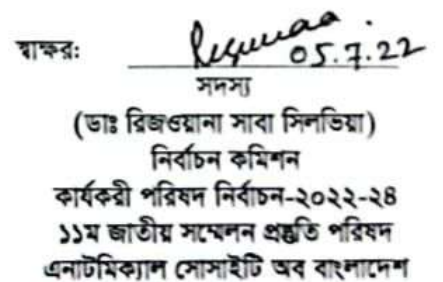 স্বাক্ষর:
05.7.22
সদস্য
(ডাঃ রিজওয়ানা সাবা সিলভিয়া)
নির্বাচন কমিশন
কার্যকরী পরিষদ নির্বাচন-২০২২-২৪
১১ম জাতীয় সম্মেলন প্রস্তুতি পরিষদ
এনাটমিক্যাল সোসাইটি অব বাংলাদেশ